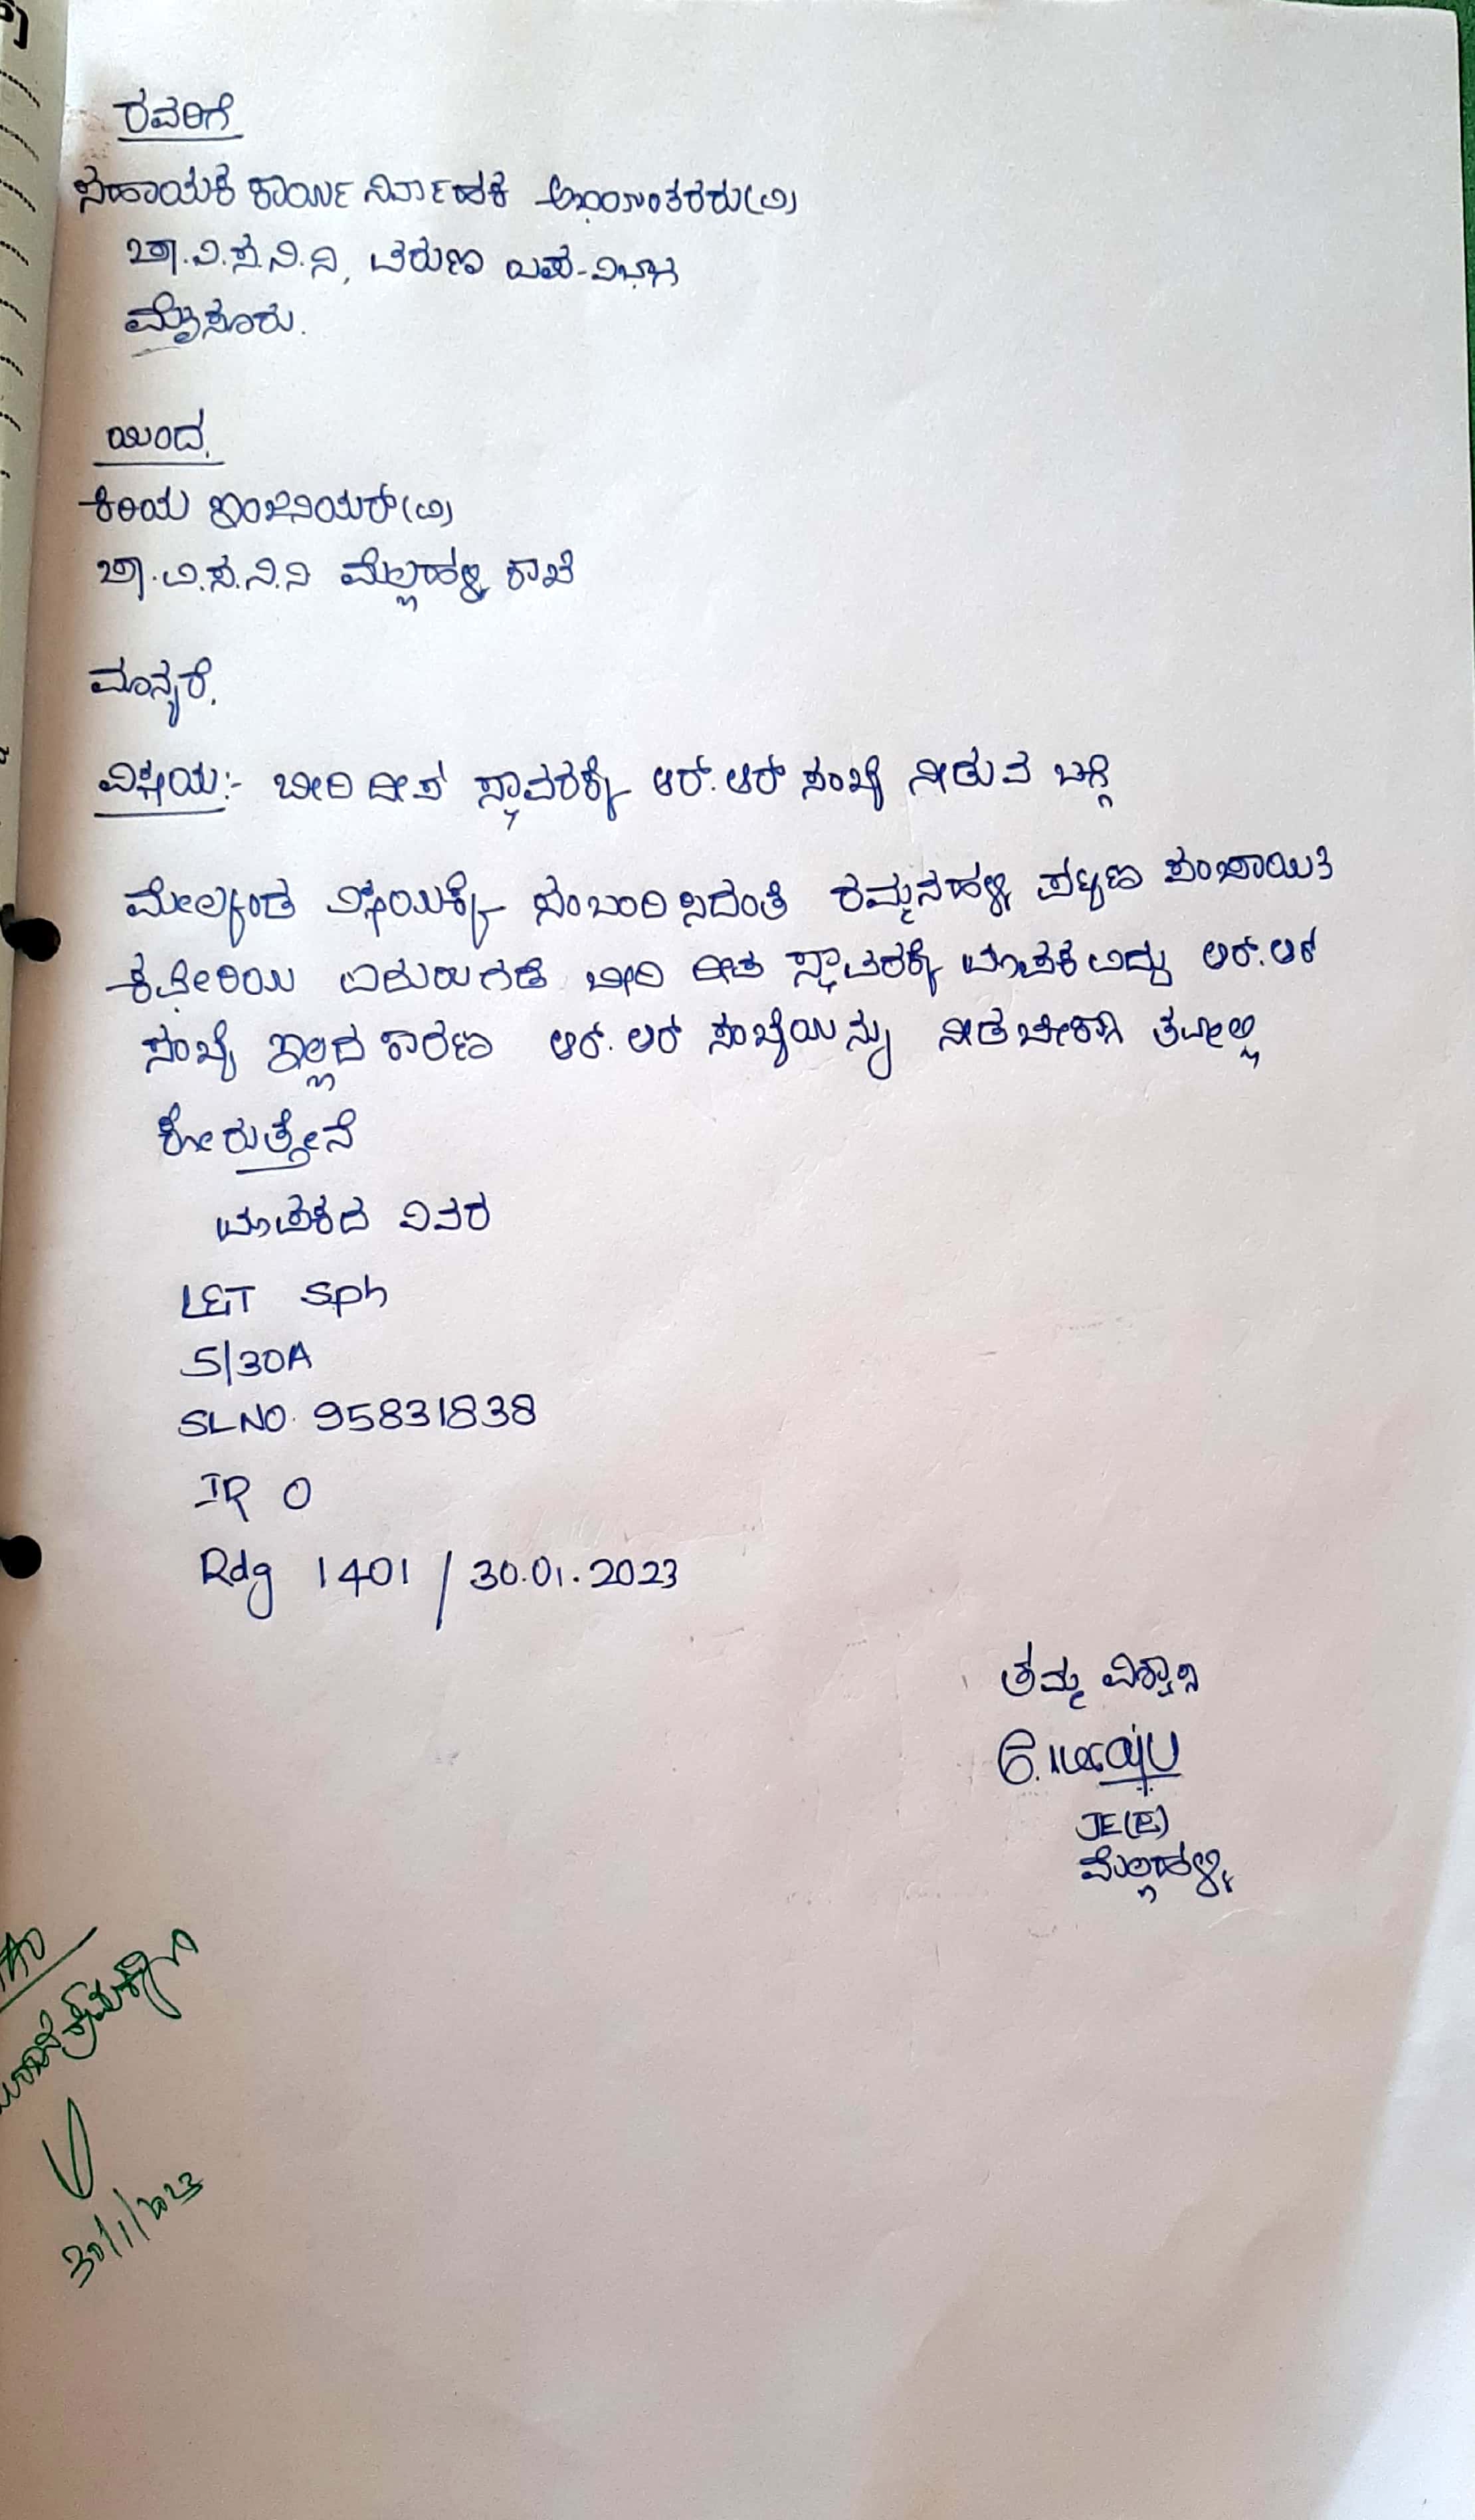 ರವರಿಗೆ
ಸಹಾಯಕ ಕಾರ್ಯ ನಿರ್ವಾಹಕ ಅಭಿಯಂತರರು(ವಿ)
ಚಾ.ವಿ.ಸ.ನಿ.ನಿ, ವರುಣ ಉಪ-ವಿಭಾಗ
ಮೈಸೂರು.
ಯಿಂದ,
ಕಿರಿಯ ಇಂಜಿನಿಯರ್(ವಿ)
ಚಾ.ವಿ.ಸ.ನಿ.ನಿ ಮೆಲ್ಲಹಳ್ಳಿ ಶಾಖೆ
ಮಾನ್ಯರೆ,
ವಿಷಯ:- ಬೀದಿ ದೀಪ ಸ್ಥಾವರಕ್ಕೆ ಆರ್.ಆರ್ ಸಂಖ್ಯೆ ನೀಡುವ ಬಗ್ಗೆ
ಮೇಲ್ಕಂಡ ವಿಷಯಕ್ಕೆ ಸಂಬಂದಿಸಿದಂತೆ ರಮ್ಮನಹಳ್ಳಿ ಪಟ್ಟಣ ಪಂಚಾಯಿತಿ
ಕಛೇರಿಯ ಎದುರುಗಡೆ ಬೀದಿ ದೀಪ ಸ್ಥಾವರಕ್ಕೆ ಮಾಪಕ ವಿದ್ದು ಆರ್.ಆರ್
ಸಂಖ್ಯೆ ಇಲ್ಲದ ಕಾರಣ ಆರ್.ಆರ್ ಸಂಖ್ಯೆಯನ್ನು ನೀಡಬೇಕಾಗಿ ತಮ್ಮಲ್ಲಿ
ಕೋರುತ್ತೇನೆ
ಮಾಪಕದ ವಿವರ
L&T Sph
5/30A
SLNO. 95831838
IR 0
Rdg 1401 / 30.01.2023
ತಮ್ಮ ವಿಶ್ವಾಸಿ
JE(E)
ಮೆಲ್ಲಹಳ್ಳಿ
30/1/2023